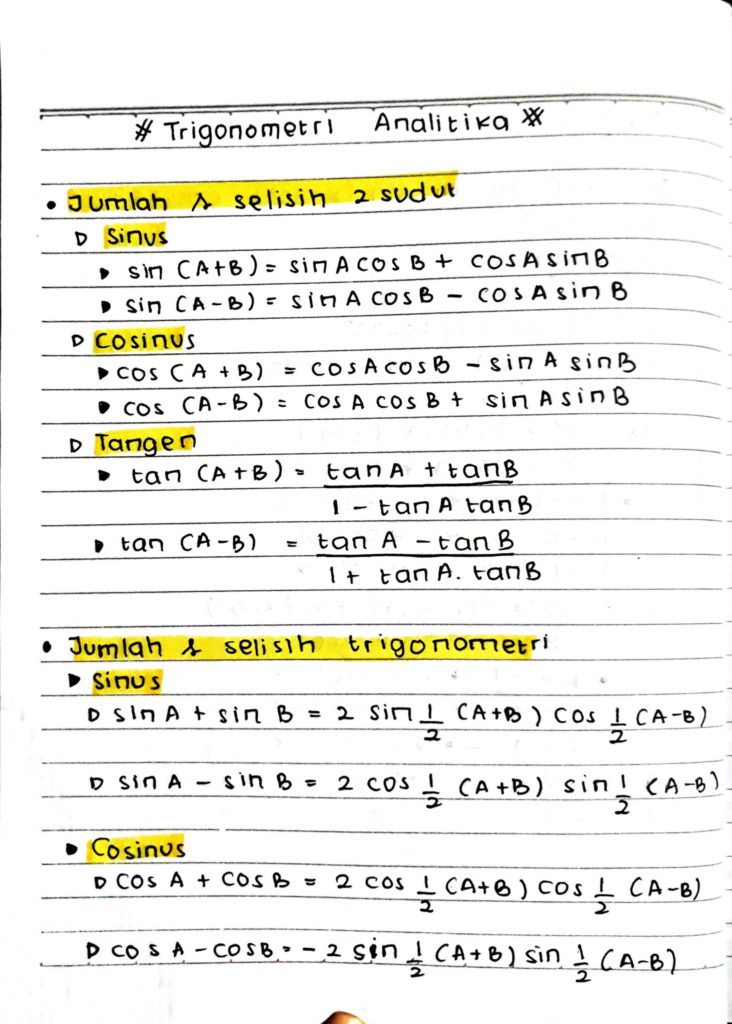 # Trigonometri Analitika #
• Jumlah & selisih 2 sudut
▷ Sinus
▶ sin (A+B) = sin A cos B + cos A sin B
▶ sin (A-B) = sin A cos B - cos A sin B
▷ Cosinus
▶ cos (A + B) = cos A cos B - sin A sin B
▶ cos (A-B) = cos A cos B + sin A sin B
▷ Tangen
▶ tan (A+B) = tan A + tan B
1 - tan A tan B
▶ tan (A-B) = tan A - tan B
1 + tan A. tan B
• Jumlah & selisih trigonometri
▶ Sinus
▷ sin A + sin B = 2 sin 1/2 (A+B) cos 1/2 (A-B)
▷ sin A - sin B = 2 cos 1/2 (A+B) sin 1/2 (A-B)
▶ Cosinus
▷ cos A + cos B = 2 cos 1/2 (A+B) cos 1/2 (A-B)
▷ cos A - cos B = - 2 sin 1/2 (A+B) sin 1/2 (A-B)